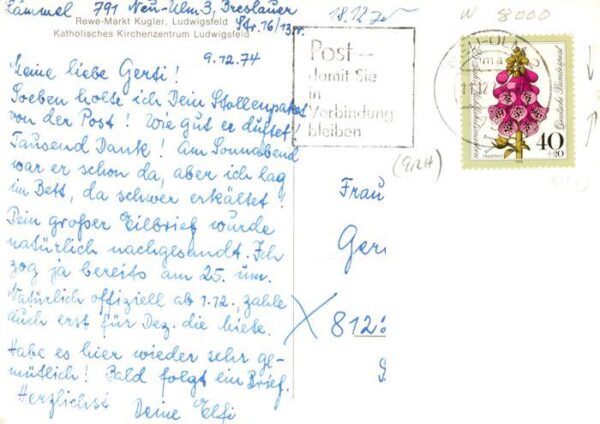 Lämmel 791 Neu-Ulm 3, Breslauer
Str. 16/13
Rewe-Markt Kugler, Ludwigsfeld
Katholisches Kirchenzentrum Ludwigsfeld
9.12.74
Meine liebe Gerti!
Soeben holte ich Dein Stollenpaket
von der Post! Wie gut er duftet!
Tausend Dank! Am Sonnabend
war er schon da, aber ich lag
im Bett, da schwer erkältet!
Dein großer Eilbrief wurde
natürlich nachgesandt. Ich
zog ja bereits am 25. um.
Natürlich offiziell ab 1.12., zahle
auch erst für Dez. die Miete.
Habe es hier wieder sehr ge-
mütlich! Bald folgt ein Brief.
Herzlichst Deine Elfi
18.12.
Post –
damit Sie
in
Verbindung
bleiben
8000
Deutsche Bundespost
40
+20
Frau
Ger
812